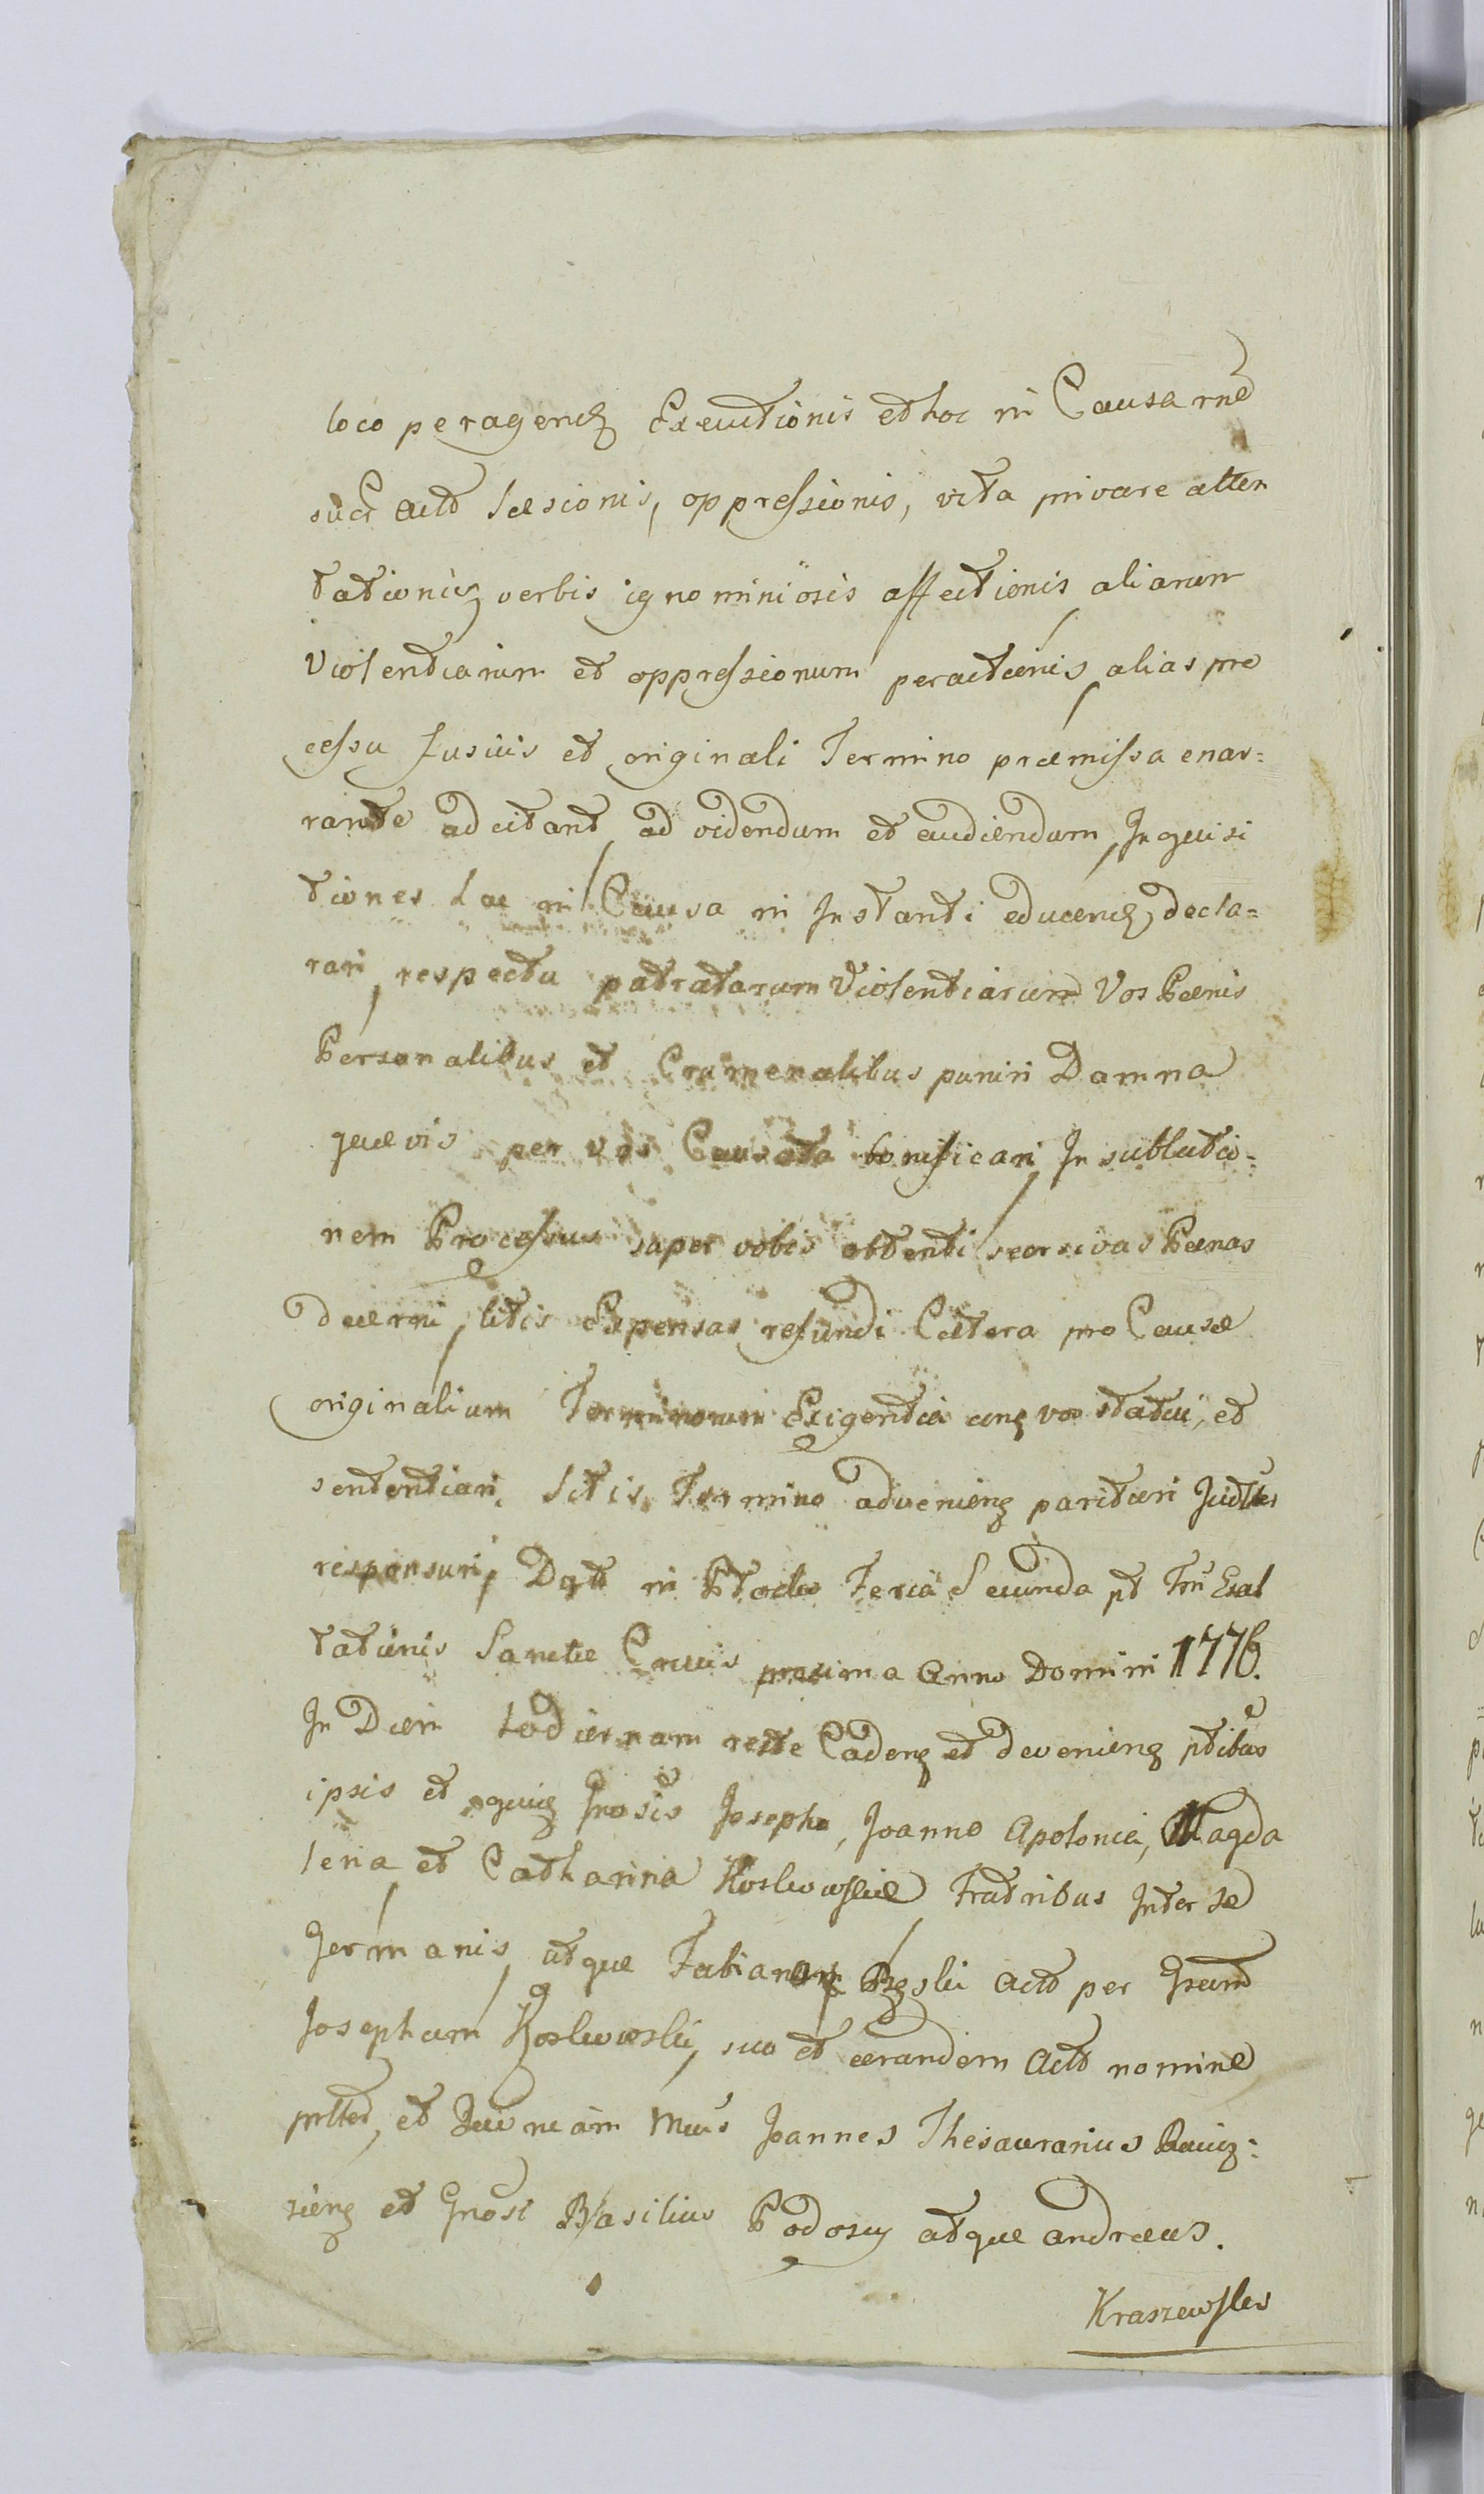 loco peragend Executionis et hoc in Causa rne
Actd læsionis, oppressionis, vita privare atten
tationis verbis ignominiosis affectionis aliarum
Violentiarum et oppressionum peractionis, alias pro
cessu fusius et originali Termino præmissa enar=
rante adcitant, ad videndum et audiendum, Inquisi
tiones hac in Causa in Instanti educend, decla=
rari, respectu patratarum Violentiarum Vos Pænis
Personalibus et Criminalibus puniri Damna
quævis per vos Causata bonificari, In sublatio=
nem Processus super vobis obtenti seorsivas Pænas
decerni, litis Expensas refundi Cætera pro Causæ
originalium Terminorum Exigentia vos statui, et
sententiari, Sitis Termino advenieng parituri
responsuri, Datt in Feria Secunda pt Exal
tationis Sanctæ Crucis proxima Anno Domini 1776.
In Diem hodiernam recte Cadeng et devenieng ptibus
ipsis et Josepho, Joanne Apolonia, Magda
lena et Catharina Fratribus Inter se
Germanis, atque Fabiano Actd per Gsum
Josephum Koslowski, suo et eorundem Actd nomine
et Joannes Thesaurarius
et Gnosi Basilius Podosy atque Andreas.
Kraszewskes